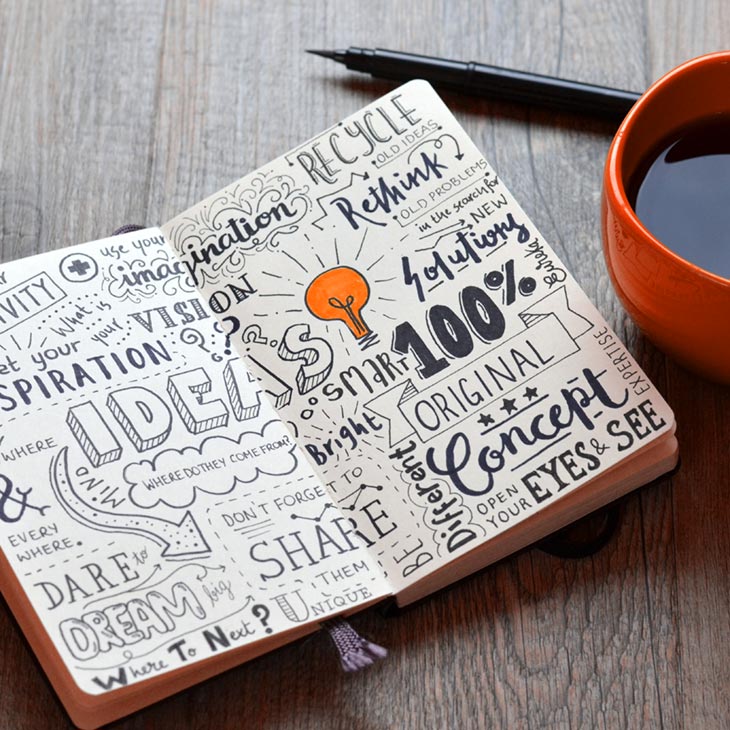 use your
imagination
VITY
What is
your
VISION?
et your
SPIRATION
IDEAS
WHERE
MIND
WHERE DO THEY COME FROM?
&
EVERY
WHERE.
DON'T FORGET TO
SHARE
THEM
DARE to
DREAM big
UNIQUE
Where To Next?
RECYCLE
OLD IDEAS
Rethink
OLD PROBLEMS
in the search for
NEW
Solutions
Eureka
SMART
100%
ORIGINAL
Bright
Concept
EXPERTISE
BE Different
OPEN
YOUR
EYES & SEE